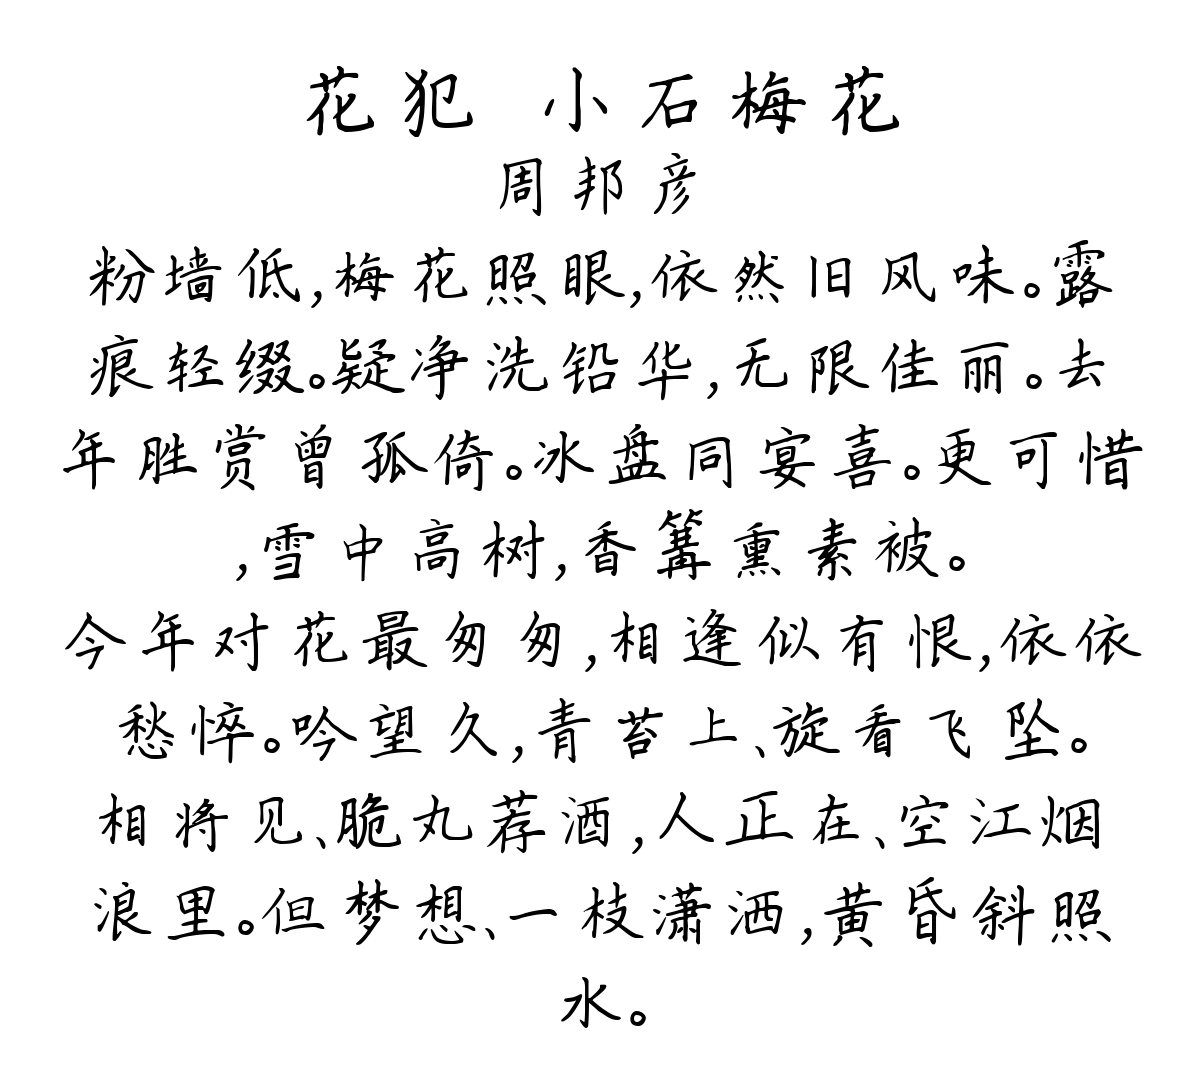 花犯 小石梅花
周邦彦
粉墙低,梅花照眼,依然旧风味。露
痕轻缀。疑净洗铅华,无限佳丽。去
年胜赏曾孤倚。冰盘同宴喜。更可惜
,雪中高树,香篝熏素被。
今年对花最匆匆,相逢似有恨,依依
愁悴。吟望久,青苔上、旋看飞坠。
相将见、脆丸荐酒,人正在、空江烟
浪里。但梦想、一枝潇洒,黄昏斜照
水。